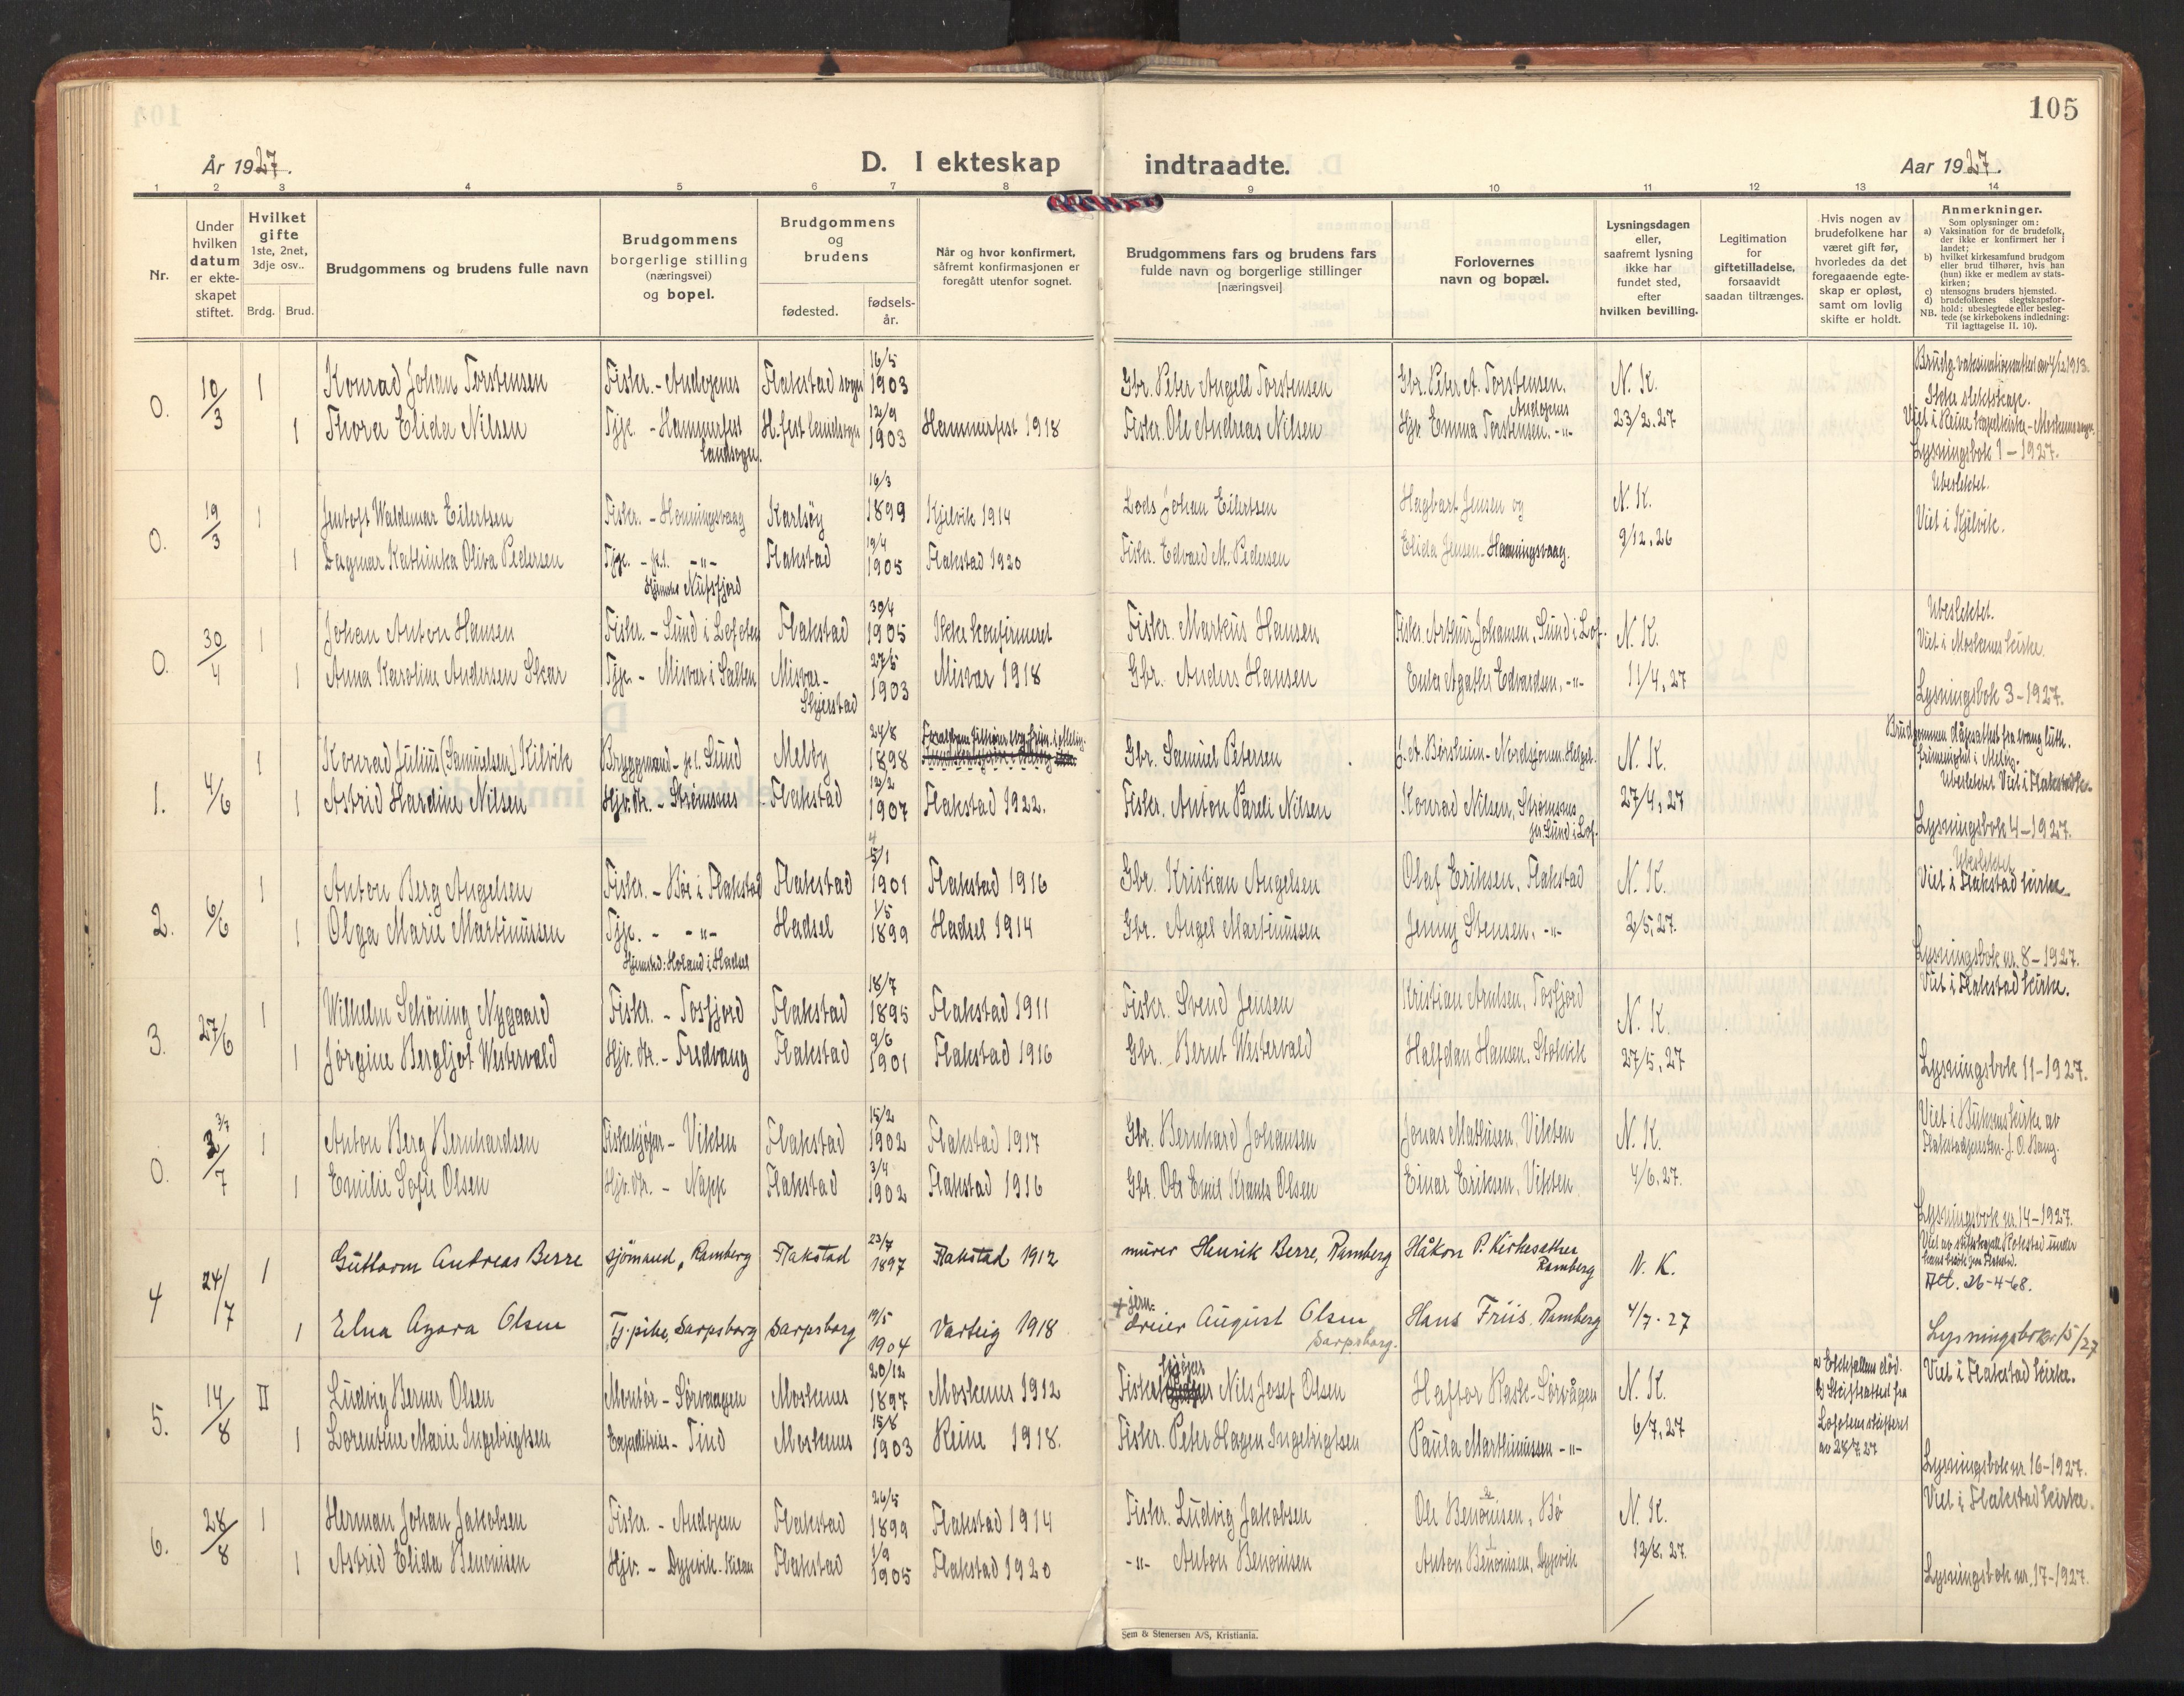 105
År 1927.
D. I ekteskap indtraadte.
Aar 1927.
1 2 3 4 5 6 7 8 9 10 11 12 13 14
Nr.
Under hvilken datum er ekteskapet stiftet.
Hvilket gifte 1ste, 2net, 3dje osv..
Brdg. Brud.
Brudgommens og brudens fulle navn
Brudgommens borgerlige stilling (næringsvei) og bopel.
Brudgommens og brudens
fødested.
fødselsår.
Når og hvor konfirmert, såfremt konfirmasjonen er foregått utenfor sognet.
Brudgommens fars og brudens fars fulde navn og borgerlige stillinger [næringsvei]
Forlovernes navn og bopæl.
Lysningsdagen eller, saafremt lysning ikke har fundet sted, efter hvilken bevilling.
Legitimation for giftetilladelse, forsaavidt saadan tiltrænges.
Hvis nogen av brudefolkene har været gift før, hvorledes da det foregaaende egteskap er opløst, samt om lovlig skifte er holdt.
Anmerkninger.
Som oplysninger om:
a) Vaksination for de brudefolk, der ikke er konfirmert her i landet;
b) hvilket kirkesamfund brudgom eller brud tilhører, hvis han (hun) ikke er medlem av statskirken;
c) utensogns bruders hjemsted.
d) brudefolkenes slegtskapsforhold: ubeslegtede eller beslegtede (se kirkebokens indledning: Til iagttagelse II. 10).
NB.
0. 10/3 1 Konrad Johan Torstensen Fisker. - Andopnes Flakstad sogn 16/5 1903 Gbr. Peter Angell Torstensen Gbr. Peter A. Torstensen. Andopnes N. K. Brudg. vaksinationsattest av 4/12 1913.
Ikke slektskap.
1 Thora Elida Nilsen Tjp. - Hammerfest landsogn. H.fest landsogn 12/9 1903 Hammerfest 1918 Fisker. Ole Andreas Nilsen Hjv. Emma Torstensen. -"- 23/2.27 Viet i Reine kapelkirke - Moskenes sogn.
Lysningsbok 1 - 1927.
0. 19/3 1 Jentoft Waldemar Eilertsen Fisker. - Honningsvaag Karlsøy 16/3 1899 Kjelvik 1914 Lods Johan Eilertsen Hagbart Jensen og N. K. Ubeslektet.
Viet i Kjelvik.
1 Dagmar Kathinka Oliva Pedersen Tjp. - p.t. -"- Nufsfjord Flakstad 19/4 1905 Flakstad 1920 Fisker. Edvard M. Pedersen Elida Jensen - Honningsvaag. 9/12.26
0. 30/4 1 Johan Anton Hansen Fisker. - Sund i Lofoten Flakstad 30/4 1905 Ikke konfirmeret Fisker. Markus Hansen Fisker. Arthur Johansen, Sund i Lof. N. K. Ubeslektet.
Viet i Moskenes kirke.
1 Anna Karoline Andersen Skar Tjp. - Misvær i Salten Misvær - Skjerstad 27/5 1903 Misvær 1918 Gbr. Anders Hansen Enke Agathe Edvardsen, -"- 11/4.27 Lysningsbok 3 - 1927.
1. 4/6 1 Konrad Julius (Samuelsen) Kilvik Bryggemand - p.t. Sund Meløy 24/8 1898 Gbr. Samuel Petersen J. A. Børsheim - Nordsjona. Helgel. N. K. Brudgommen dåpsattest fra evang luth. frimenighet i Meløy.
Ubeslektet Viet i Flakstad k.
1 Astrid Hardine Nilsen Hjv. dtr. - Strømsnes Flakstad 12/2 1907 Flakstad 1922. Fisker. Anton Pareli Nilsen Konrad Nilsen, Strømsnes pr. Sund i Lof. 27/4.27 Lysningsbok 4 - 1927.
2. 6/6 1 Anton Berg Angelsen Fisker. - Bø i Flakstad Flakstad 1901 Flakstad 1916 Gbr. Kristian Angelsen Olaf Eriksen, Flakstad N. K. Ubeslektet
Viet i Flakstad kirke.
1 Olga Marie Martinussen Tjp. - -"- Hjemsted: Holand i Hadsel Hadsel 1/5 1899 Hadsel 1914 Gbr. Angel Martinussen Jenny Stensen. -"- 2/5.27. Lysningsbok nr. 8 - 1927.
3. 27/6 1 Wilhelm Schöning Nygaard Fisker. - Torsfjord Flakstad 18/7 1895 Flakstad 1911 Fisker. Svend Jensen Kristian Arntsen, Torsfjord N. K. Viet i Flakstad kirke.
1 Jørgine Bergljot Westervald Hjv. dtr. - Fredvang Flakstad 9/6 1901 Flakstad 1916 Gbr. Bernt Westervald Halfdan Hansen, Stokvik 27/5.27 Lysningsbok 11 - 1927.
0. 3/7 1 Anton Berg Bernhardsen Fiskekjøper - Vikten Flakstad 15/2 1902 Flakstad 1917 Gbr. Bernhard Johansen Jonas Mathisen, Vikten N. K. Viet i Buksnes kirke av Flakstadpresten J. O. Bang.
1 Emilie Sofie Olsen Hjv. dtr. - Napp Flakstad 3/4 1902 Flakstad 1916 Gbr. Ole Emil Krants Olsen Einar Eriksen, Vikten 4/6.27. Lysningsbok nr. 14 - 1927.
4 24/7 1 Guttorm Andreas Berre Sjömand, Ramberg Flakstad 23/7 1897 Flakstad 1912 murer Henrik Berre, Ramberg Håkon P. Kirkesæther Ramberg N. K.
Att. 26-4-68.
1 Elna Agora Olsen Tj.pike, Sarpsborg Sarpsborg 19/5 1904 Varteig 1918 + jern-dreier August Olsen Sarpsborg. Hans Friis. Ramberg 4/7-27 Lysningsbok 15/27
5. 14/8 II Ludvig Berner Olsen Montør - Sørvaagen Moskenes 20/12 1897 Moskenes 1912 Fiskekjøper Nils Josef Olsen Haftor Rask - Sørvågen N. K. a) Ektefellens død. b) Skifteattest fra Lofotens skifteret av 28/7.27 Viet i Flakstad kirke.
1 Lorentine Marie Ingebrigtsen Expeditrise - Tind Moskenes 15/8 1903 Reine 1918. Fisker. Peter Hagen Ingebrigtsen Paula Marthinussen -"- 6/7.27 Lysningsbok nr 16 - 1927.
6. 28/8 1 Herman Johan Jakobsen Fisker. - Andopen Flakstad 26/5 1899 Flakstad 1914 Fisker. Ludvig Jakobsen Ole Benonisen, Bö N. K. Viet i Flakstad kirke.
1 Astrid Elida Benonisen Hjv. - Dypvik - Kilan Flakstad 1/9 1905 Flakstad 1920 -"- Anton Benonisen Anton Benonisen, Dypvik 12/8.27. Lysningsbok nr. 17 - 1927.
Sem & Stenersen A/S, Kristiania.